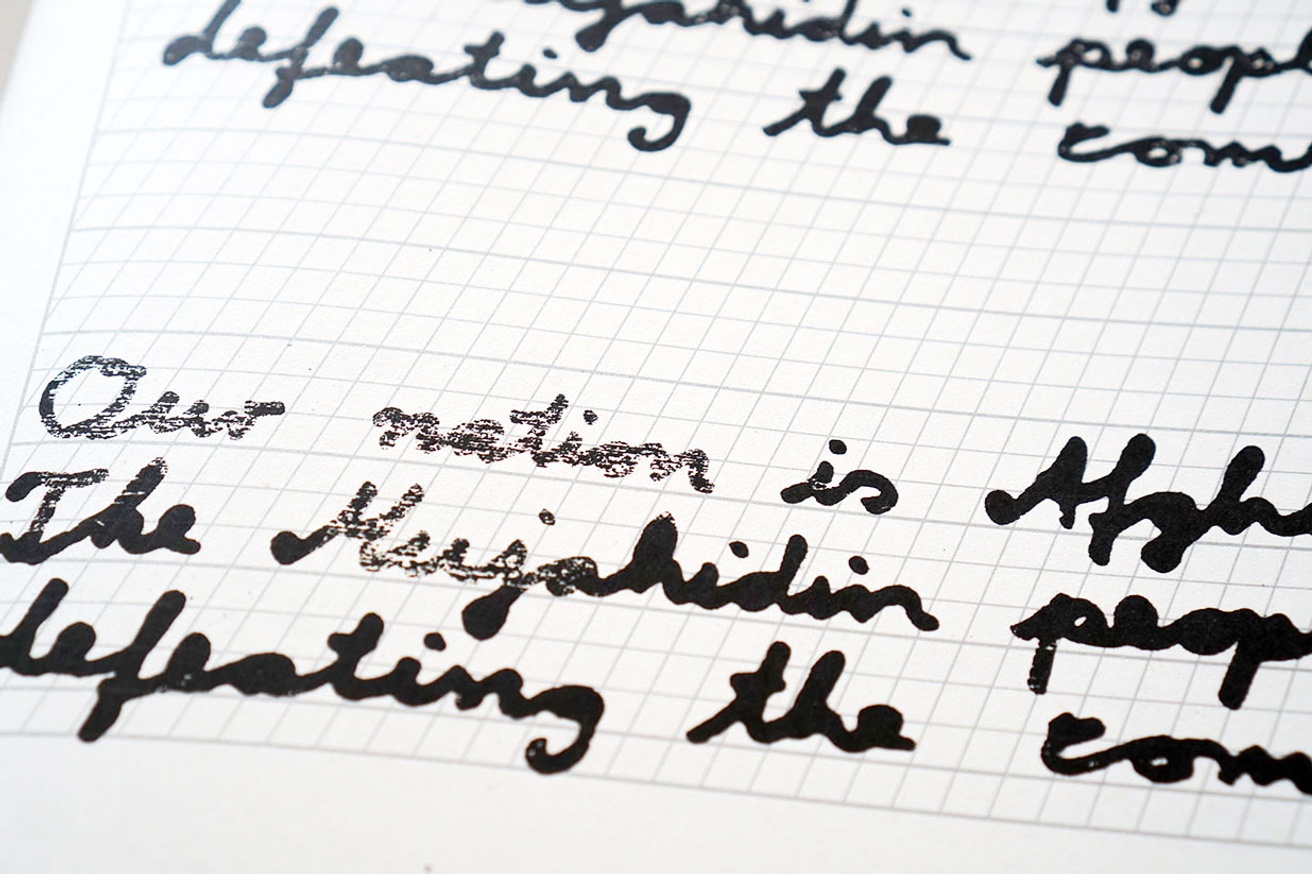 Mujahidin peopl
defeating the com
Our nation is Afgh
The Mujahidin peop
defeating the com